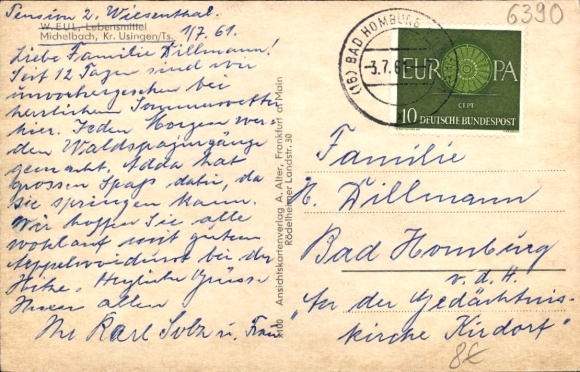 6390
Pension z. Wiesenthal.
W. EUL, Lebensmittel
Michelbach, Kr. Usingen/Ts.
1/7. 61.
Liebe Familie Dillmann!
Seit 12 Tagen sind wir
unvorhergesehen bei
herrlichem Sommerwetter
hier. Jeden Morgen wer-
den Waldspaziergänge
gemacht. Adda hat
grossen Spaß dafür, da
sie springen kann.
Wir hoffen Sie alle
wohlauf mit gutem
bei der
Hitze. Herzliche Grüsse
Ihnen allen
Ihr Karl Solz u. Frau
Ansichtskartenverlag A. Alter, Frankfurt a/Main
Rödelheimer Landstr. 30
(16) BAD HOMBURG
3.7.61
EUROPA
CEPT
10 DEUTSCHE BUNDESPOST
Familie
H. Dillmann
Bad Homburg
v. d. H.
"An der Gedächtnis-
kirche Kirdorf"
8€